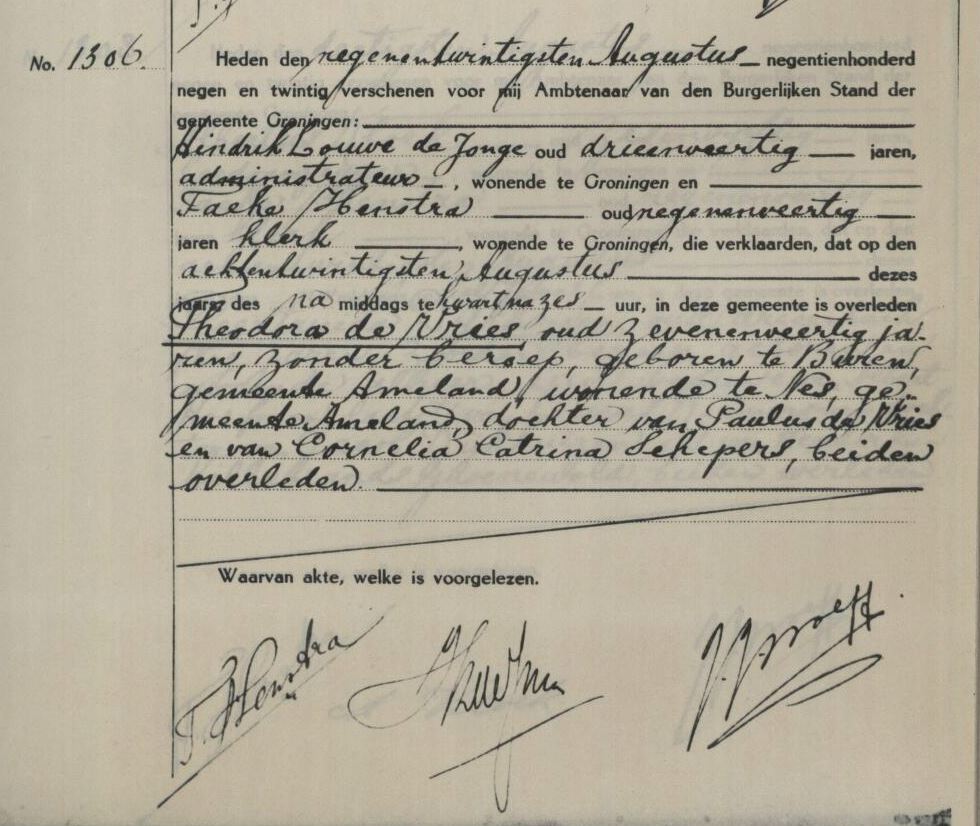 No. 1306.
Heden den negenentwintigsten Augustus negentienhonderd
negen en twintig verschenen voor mij Ambtenaar van den Burgerlijken Stand der
gemeente Groningen:
Hindrik Louwe de Jonge oud drieenveertig jaren,
administrateur, wonende te Groningen en
Faeke Henstra oud negenenveertig
jaren klerk, wonende te Groningen, die verklaarden, dat op den
achtentwintigsten Augustus dezes
jaars des na middags te kwart na zes uur, in deze gemeente is overleden
Theodora de Vries, oud zevenenveertig ja-
ren, zonder beroep, geboren te Buren,
gemeente Ameland, wonende te Nes, ge-
meente Ameland, dochter van Paulus de Vries
en van Cornelia Catrina Schepers, beiden
overleden.
Waarvan akte, welke is voorgelezen.
F. Henstra